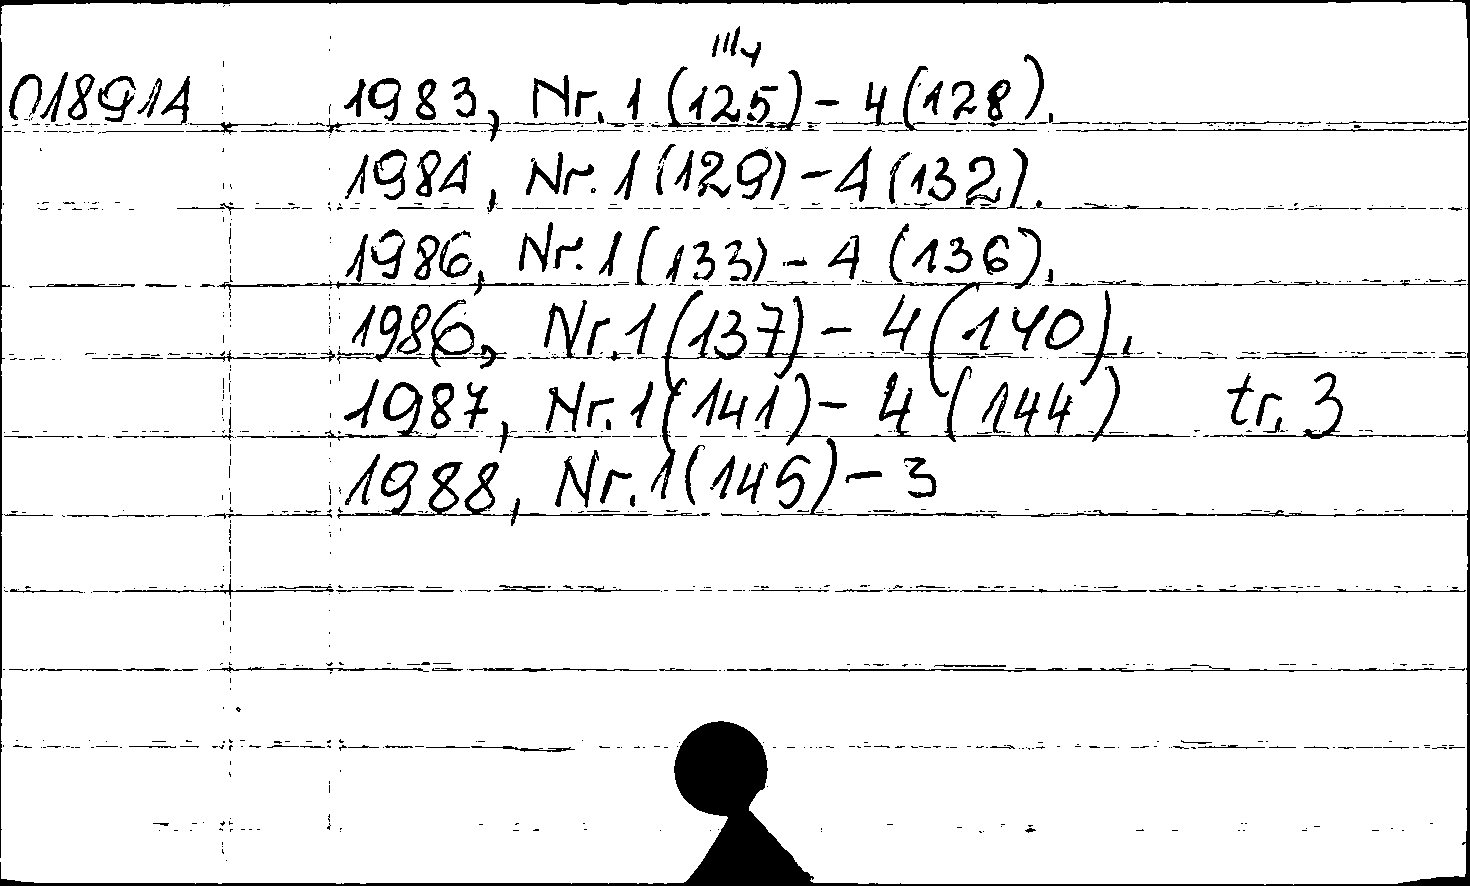 018914 1983, Nr. 1 (125) - 4 (128).
1984, Nr. 1 (129) - 4 (132).
1986, Nr. 1 (133) - 4 (136).
1986, Nr. 1 (137) - 4 (140).
1987, Nr. 1 (141) - 4 (144) tr. 3
1988, Nr. 1 (145) - 3